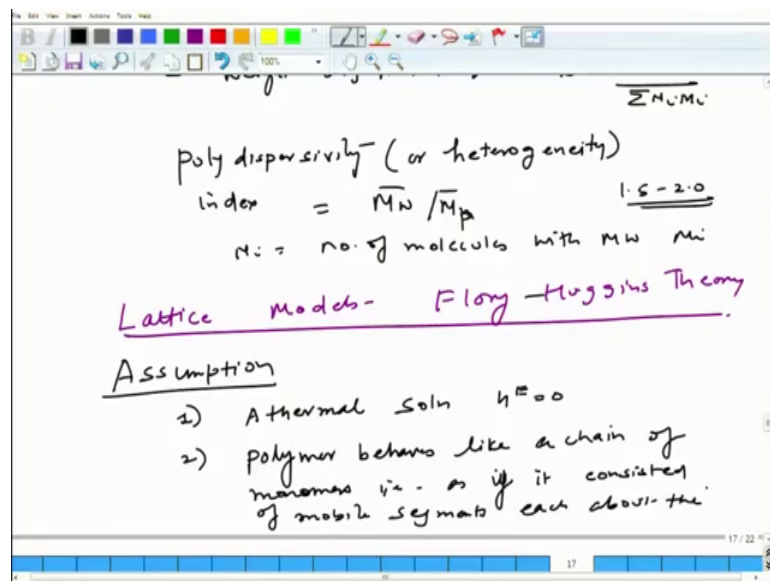 File Edit View Insert Actions Tools Help
B I
100%
Σ Ni Mi
poly dispersivity (or heterogeneity)
index = M̄w / M̄p
1.5 - 2.0
Ni = no. of molecules with MW Mi
Lattice Models - Flory - Huggins Theory
Assumption
1) Athermal soln hᴱ=0
2) polymer behaves like a chain of
monomers i.e. as if it consisted
of mobile segments each about the
17 / 22
17